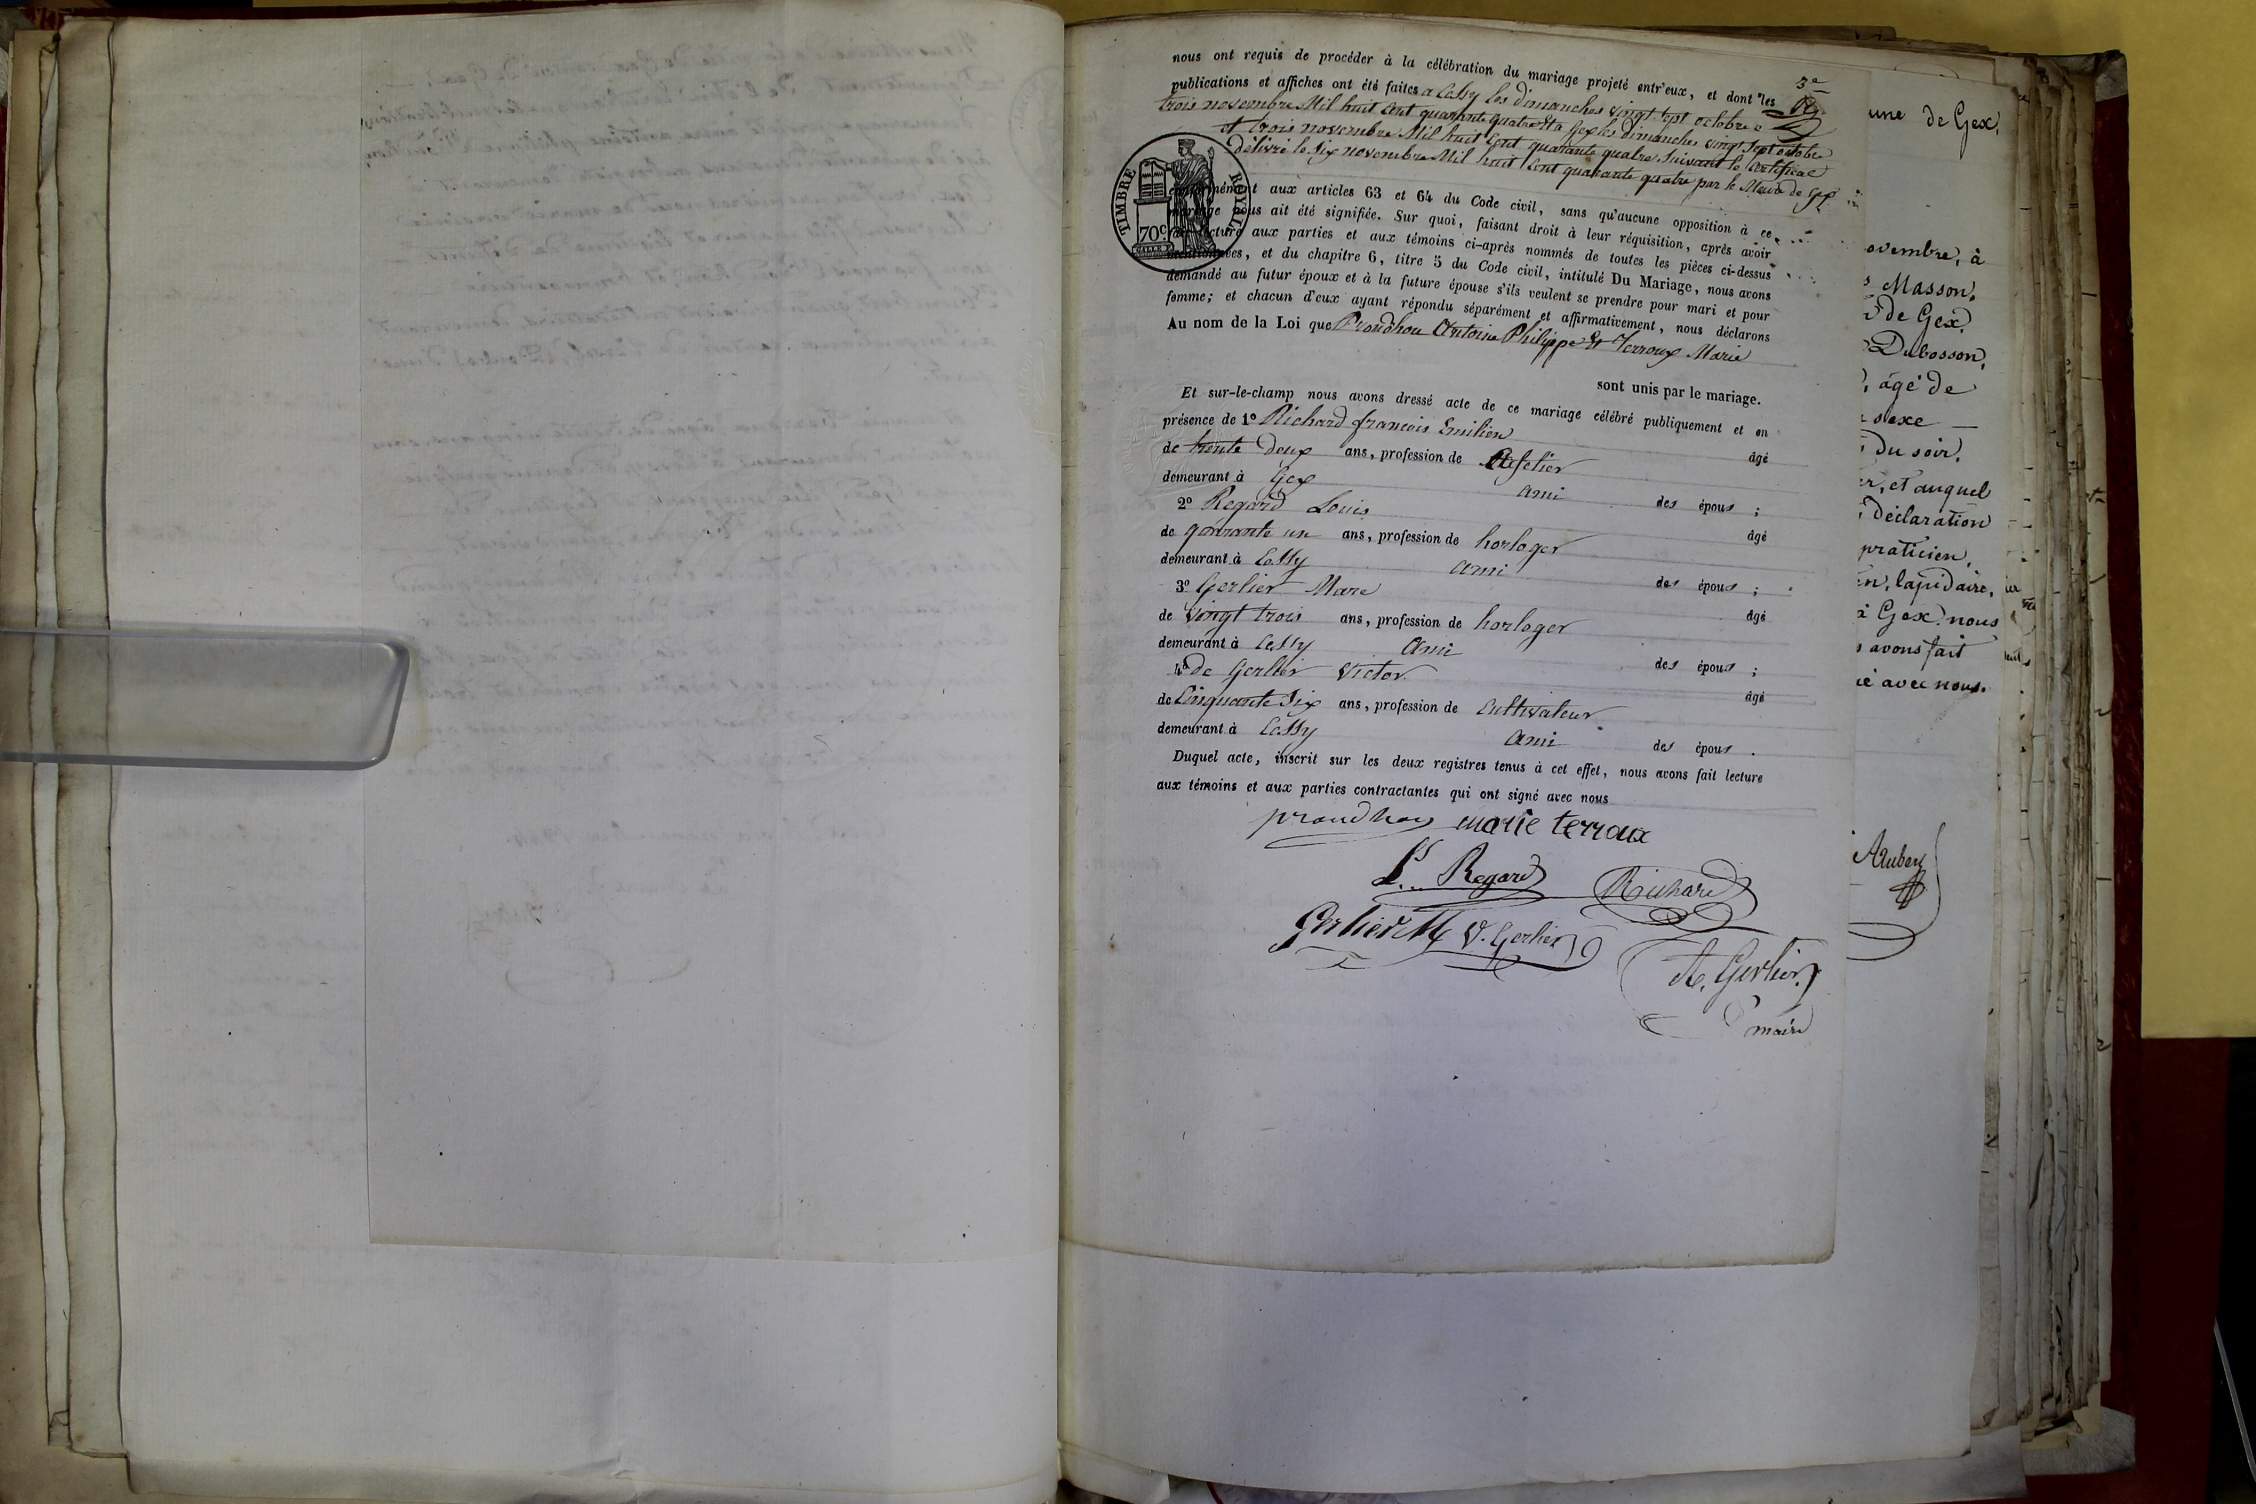 nous ont requis de procéder à la célébration du mariage projeté entr'eux, et dont les
publications et affiches ont été faites a Cessy les dimanches vingt sept octobre e
trois novembre Mil huit Cent quarante quatre Et a Gex les dimanches vingt Sept octobre
et trois novembre Mil huit Cent quarante quatre Suivant le Certificat
délivré le Six novembre Mil huit Cent quarante quatre par le Maire de Gex
TIMBRE ROYAL
70c
conformément aux articles 63 et 64 du Code civil, sans qu'aucune opposition à ce
mariage nous ait été signifiée. Sur quoi, faisant droit à leur réquisition, après avoir
lecture aux parties et aux témoins ci-après nommés de toutes les pièces ci-dessus
mentionnées, et du chapitre 6, titre 5 du Code civil, intitulé Du Mariage, nous avons
demandé au futur époux et à la future épouse s'ils veulent se prendre pour mari et pour
femme; et chacun d'eux ayant répondu séparément et affirmativement, nous déclarons
Au nom de la Loi que Proudhon Antoine Philippe Et Terroux Marie
sont unis par le mariage.
Et sur-le-champ nous avons dressé acte de ce mariage célébré publiquement et en
présence de 1o Richard françois Emilien
âgé
de trente deux ans, profession de
demeurant à Gex ami des épous ;
2o Regard Louis
âgé
de quarante un ans, profession de horloger
demeurant à Cessy ami des épous ;
3o Gerlier Marc
âgé
de Vingt trois ans, profession de horloger
demeurant à Cessy Ami des épous ;
4o de Gerlier Victor
âgé
de Cinquante Six ans, profession de Cultivateur
demeurant à Cessy Ami des épous .
Duquel acte, inscrit sur les deux registres tenus à cet effet, nous avons fait lecture
aux témoins et aux parties contractantes qui ont signé avec nous
proudhon marie terroux
Ls Regard Richard
Gerlier M V. Gerlier
A. Gerlier
maire
une de Gex,
ovembre, à
Masson,
de Gex,
Dubosson,
, âgé de
sexe
du soir.
er, et auquel
déclaration
praticien,
en, lapidaire,
à Gex. nous
avons fait
é avec nous.